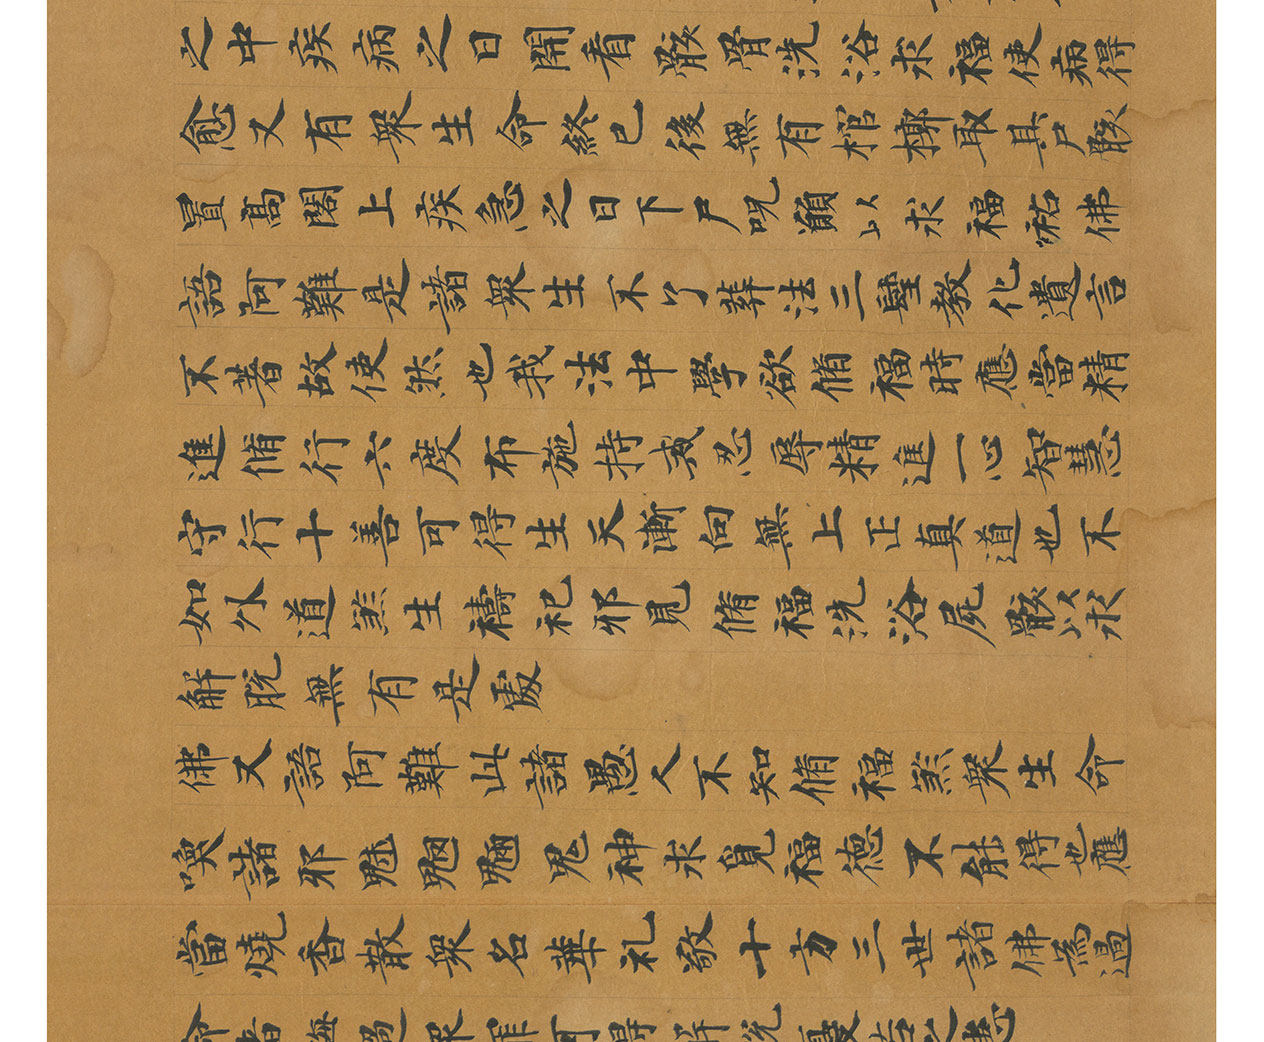 之中疾病之日開看骸骨洗浴求福使病得
愈又有衆生命終已後無有棺槨取其尸骸
置高閣上疾急之日下尸呪願以求福祐佛
語阿難是諸衆生不了葬法三聖教化遺言
不著故使然也我法中學欲脩福時應當精
進脩行六度布施持戒忍辱精進一心智慧
守行十善可得生天漸向無上正真道也不
如外道煞生禱祀邪見脩福洗浴屍骸以求
解脫無有是處
佛又語阿難此諸愚人不知脩福煞衆生命
喚諸邪魅魍魎鬼神求覓福德不能得也應
當燒香散衆名華礼敬十方三世諸佛為過
命者悔過衆罪可得解脫憂苦之患